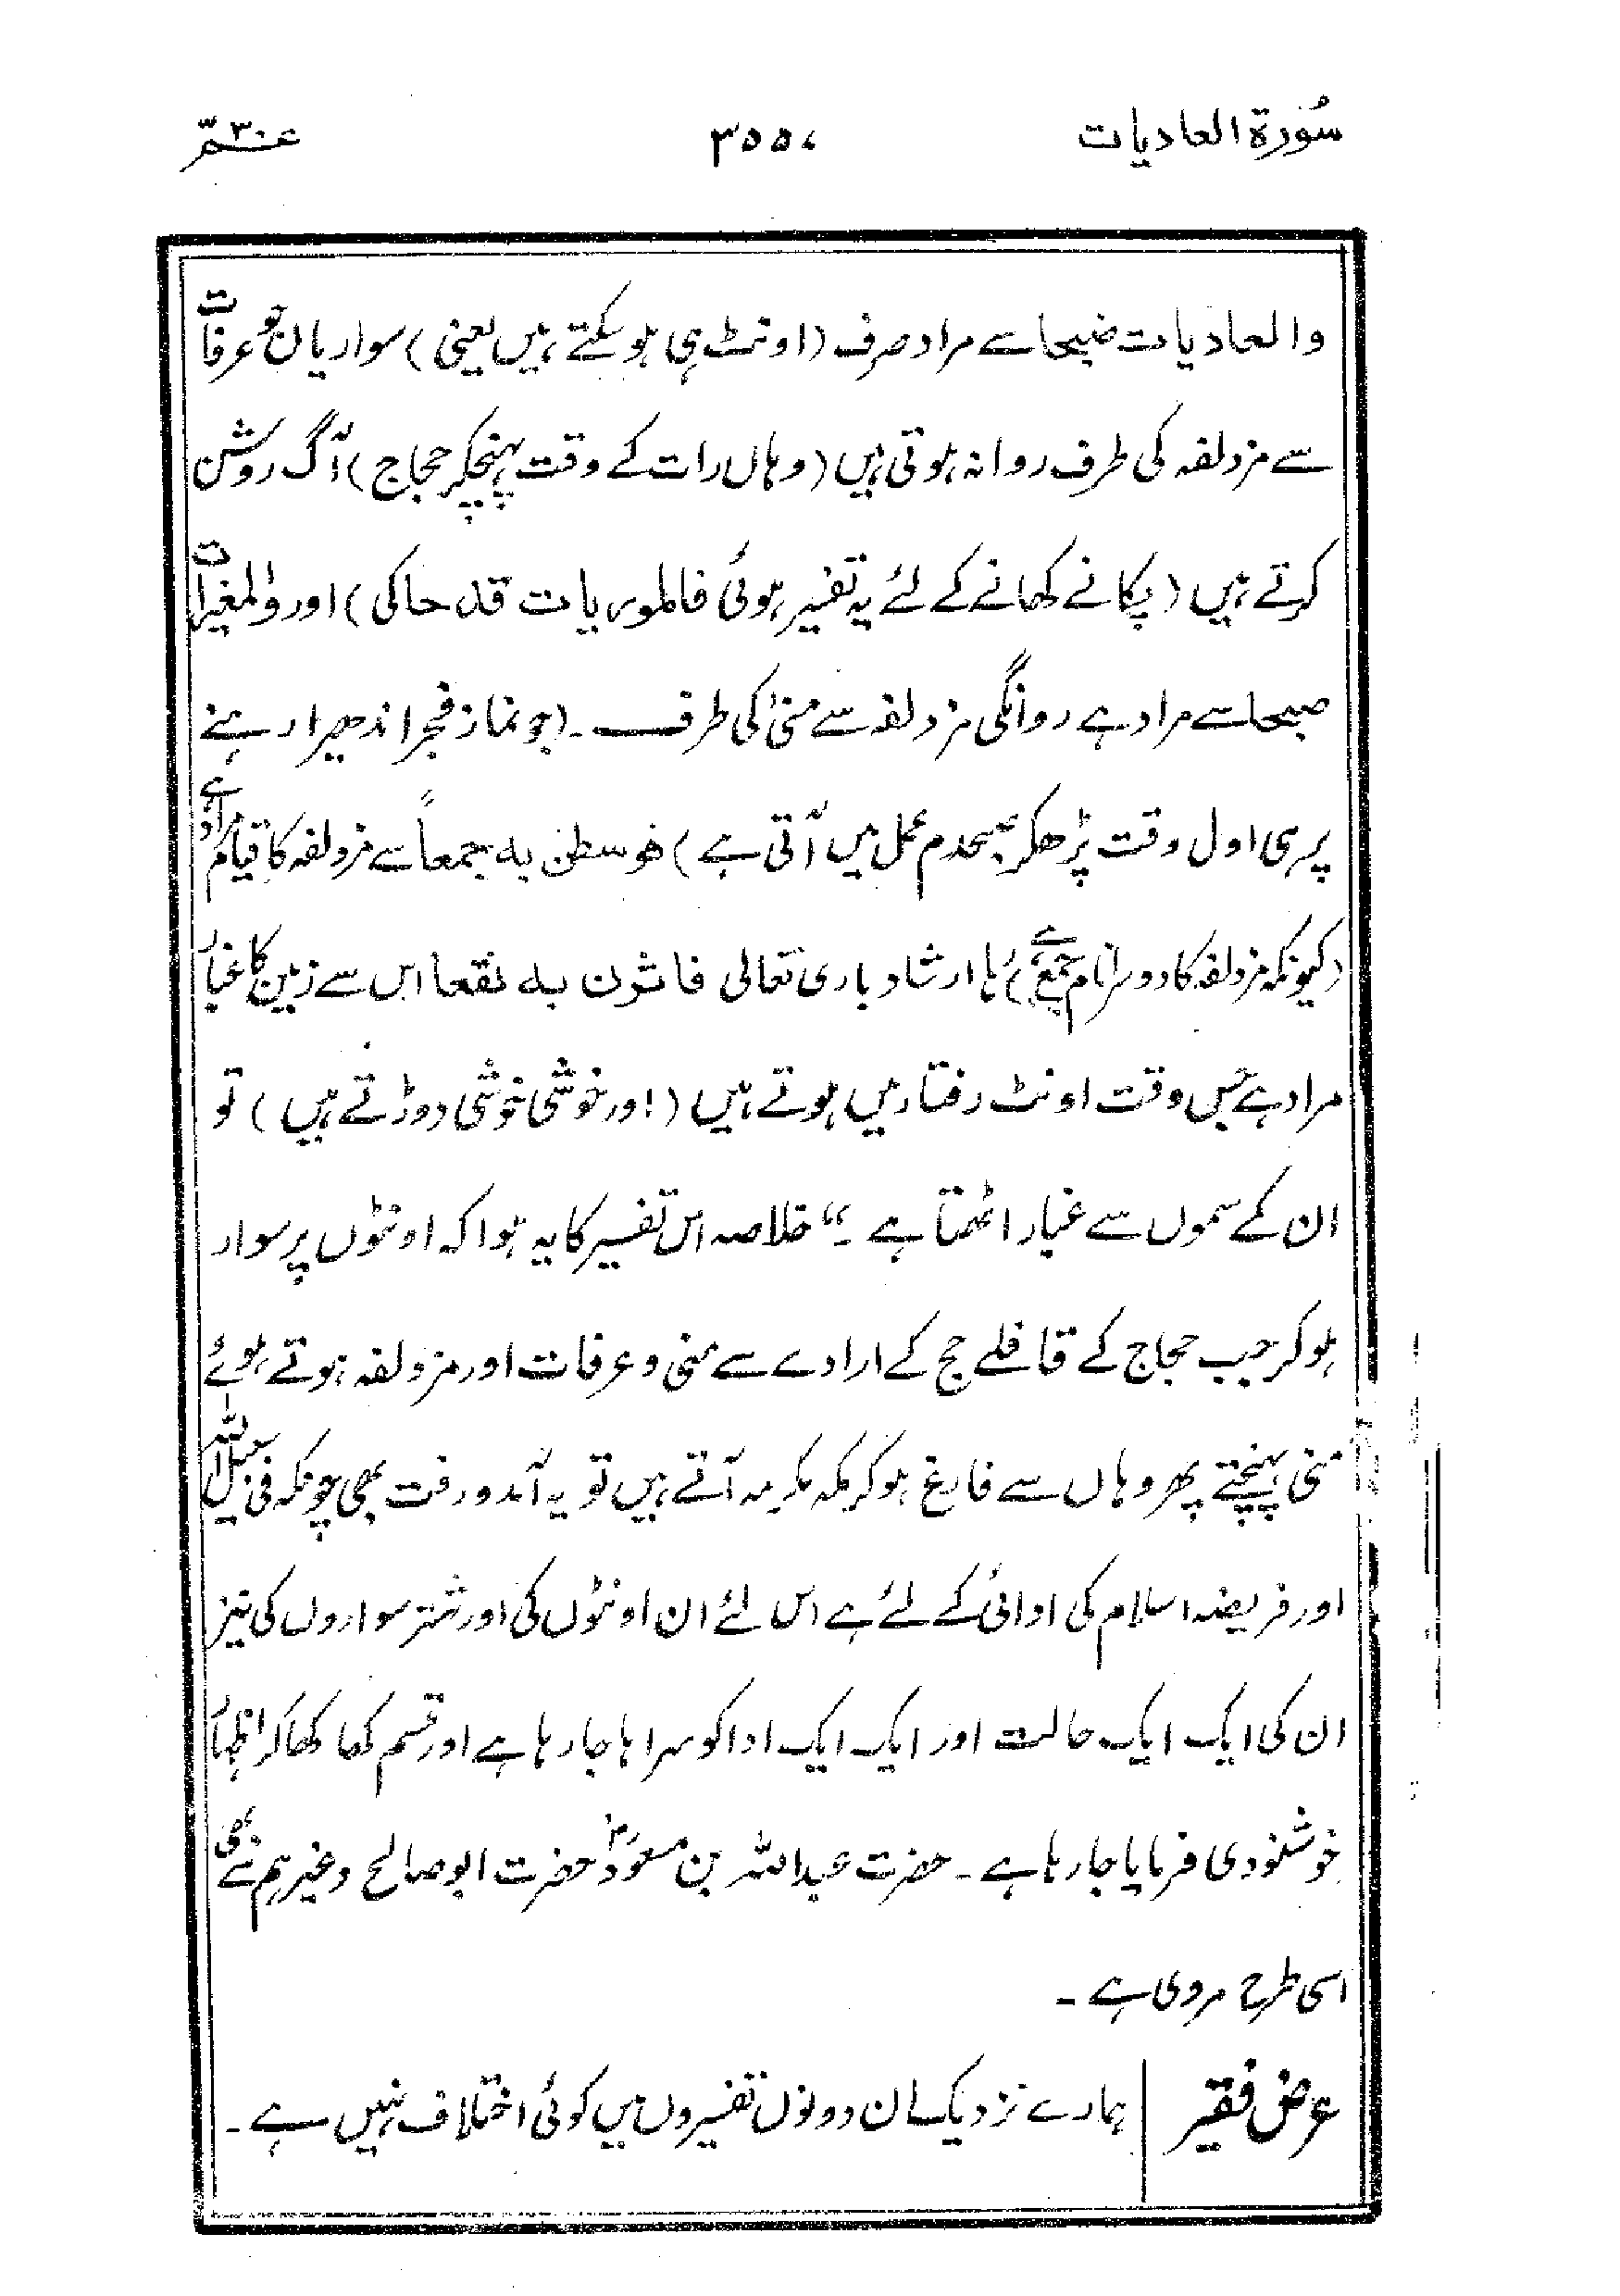 سُورة العادیات ۳۵۵۷ عمّ ۳۰
والعادیات ضبحا سے مراد صرف (اونٹ ہی ہو سکتے ہیں یعنی) سواریاں جو عرفات
سے مزدلفہ کی طرف روانہ ہوتی ہیں (وہاں رات کے وقت پہنچکر حجاج) آگ روشن
کرتے ہیں (پکانے کھانے کے لئے یہ تفسیر ہوئی فالموریات قدحا کی) اور والمغیرات
صبحا سے مراد ہے روانگی مزدلفہ سے منیٰ کی طرف ۔ (جو نماز فجر اندھیرا رہنے
پر ہی اول وقت پڑھکر صبحدم عمل میں آتی ہے) فوسطن به جمعاً سے مزدلفہ کا قیام مراد ہے
(کیونکہ مزدلفہ کا دوسرا نام جمع ہے) رہا ارشاد باری تعالی فاثرن به نقعا اس سے زمین کا غبار
مراد ہے جس وقت اونٹ رفتار میں ہوتے ہیں (اور خوشی خوشی دوڑتے ہیں) تو
ان کے سموں سے غبار اٹھتا ہے ۔“ خلاصہ اس تفسیر کا یہ ہوا کہ اونٹوں پر سوار
ہو کر جب حجاج کے قافلے حج کے ارادے سے منی و عرفات اور مزدلفہ ہوتے ہوئے
منی پہنچتے پھر وہاں سے فارغ ہو کر مکہ مکرمہ آتے ہیں تو یہ آمدورفت بھی چونکہ فی سبیل اللہ
اور فریضہ اسلام کی ادائی کے لئے ہے اس لئے ان اونٹوں کی اور شتر سواروں کی نیز
ان کی ایک ایک حالت اور ایک ایک ادا کو سراہا جا رہا ہے اور قسم کھا کھا کر اظہار
خوشنودی فرمایا جا رہا ہے ۔ حضرت عبداللہ بن مسعودؓ حضرت ابوصالح وغیرہم سے بھی
اسی طرح مروی ہے ۔
عرض فقیر | ہمارے نزدیک ان دونوں تفسیروں میں کوئی اختلاف نہیں ہے ۔